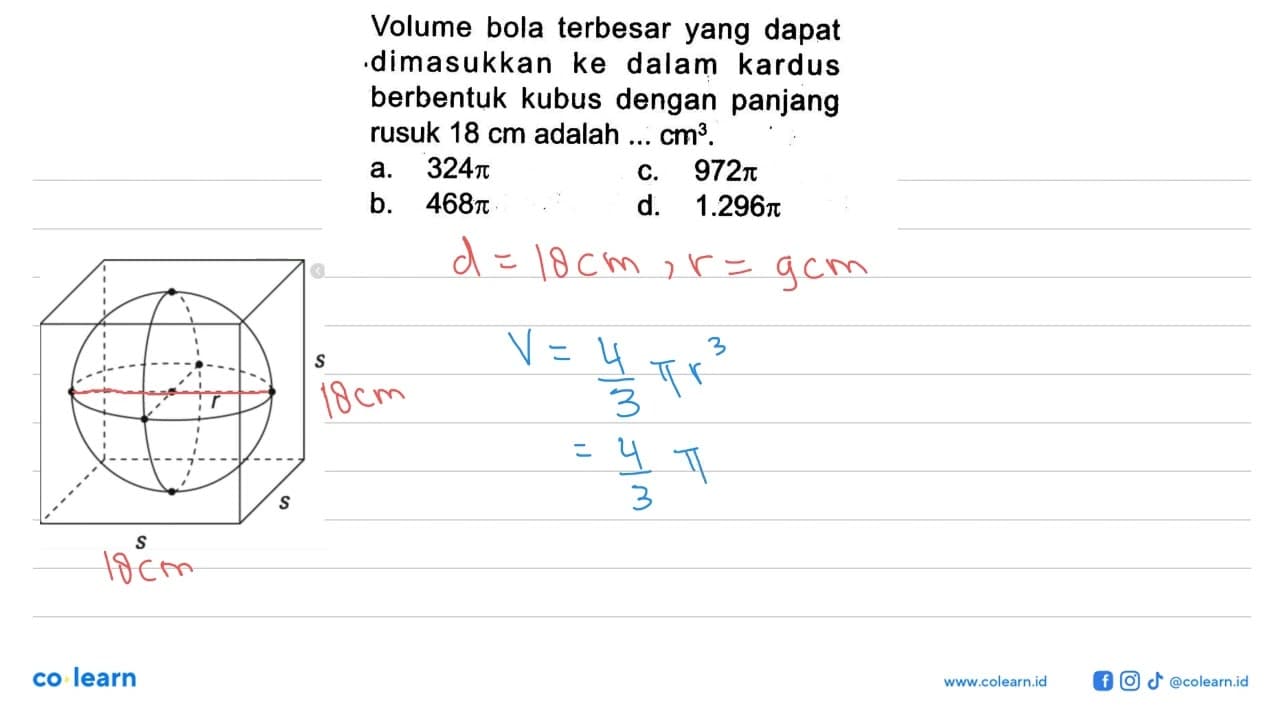 Volume bola terbesar yang dapat
dimasukkan ke dalam kardus
berbentuk kubus dengan panjang
rusuk 18 cm adalah ... cm³.
a. 324π c. 972π
b. 468π d. 1.296π
d = 18 cm , r = 9 cm
V = 4/3 π r³
= 4/3 π
s
18 cm
r
s
s
18 cm
co learn
www.colearn.id
@colearn.id